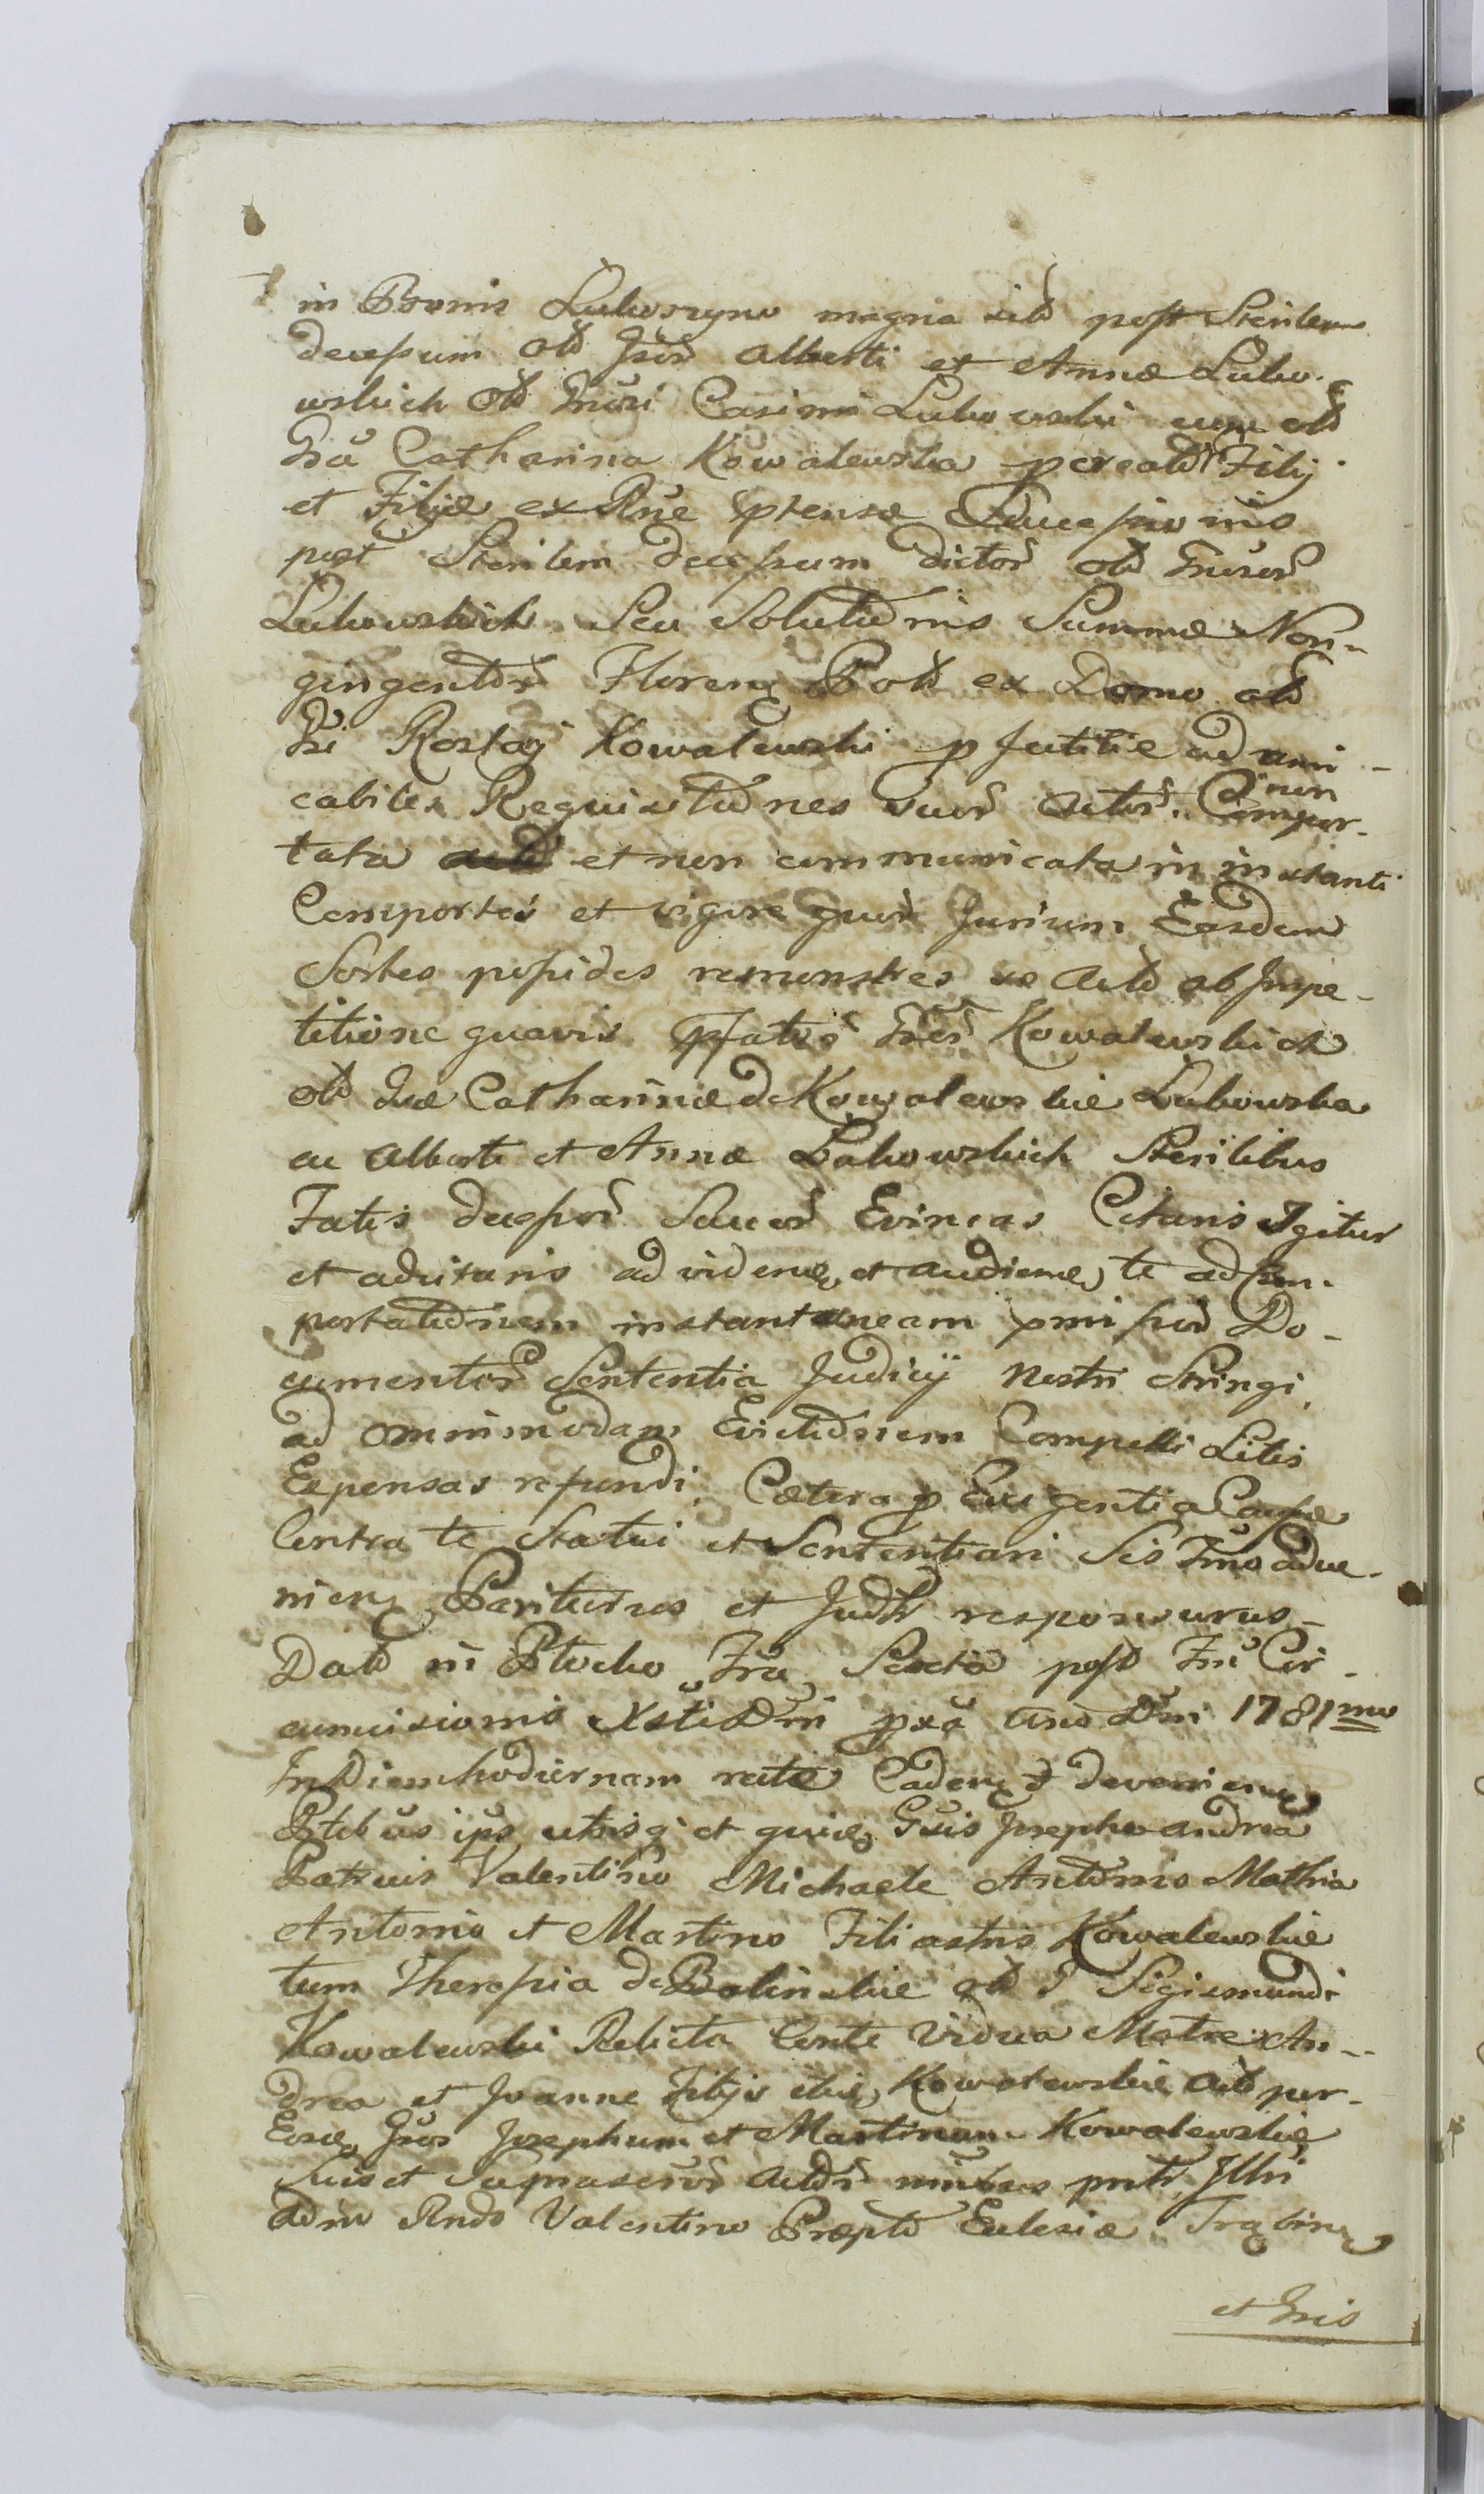 in Bonis Luboszyno magna sitt post Sterilem
decessum olt Gsor Alberti et Annæ Lubo-
wskich olt Gnosi Casimi Lubowski cum olt
Gsa Catharina Kowalewska pcreator Filij
et Filiæ ex Rne ptensæ Successionis
post Sterilem decessum dictor olt Gnosor
Lubowskich Seu Solutionis Summæ Non-
gingentor Floreng Polt ex Domo olt
Gsi Kowalewski p futilie ad ami-
cabiles Requisitiones suor Actor non
Compor-
tata et non communicata in instanti
Comportes et vigore quor Jurium Easdem
Sortes possides remonstres se Actt ab Impe-
titione quavis pfator Gser Kowalewskich
olt Gsæ Catharinæ de Kowalewskie Lubowska
ac Alberti et Annæ Lubowskich Sterilibus
Fatis decessor Saucor Evincas Citaris Igitur
et adcitaris ad videnq et audienq te ad Com-
portationem instantaneam pmissor Do-
cumentor Sententia Judicij Nostri Stringi,
ad omnimodam Evictionem Compelli Litis
Expensas refundi, Cætera p Exigentia Causæ
Contra te Statui et Sententiari Sis Tmo adve-
nieng Pariturus et Judtr responsurus
Datt in Plocko Fra Sexta post Fm Cir-
cumcisionis Xsti Dni pxa Ano Dni 1781mo
In Diem hodiernam rite Cadeng et devenieng
Ptibus ips utrisq et quidq Gsis Josepho Andrea
Patruis Valentino Michaele Antonio Mathia
Antonio et Martino Filiastris Kowalewskie
tum Theresia de Bolinskie olt G Sigismundi
Kowalewski Relicta Conte Vidua Matre An-
drea et Joanne Filijs ejus Kowalewskie Actt per
Eosdq Gsos Josephum et Martinum Kowalewskie
Suis et Suprascror Actor nnibus pntr Illri
Admo Rndo Valentino Præpto Ecclesiæ
et Gsis